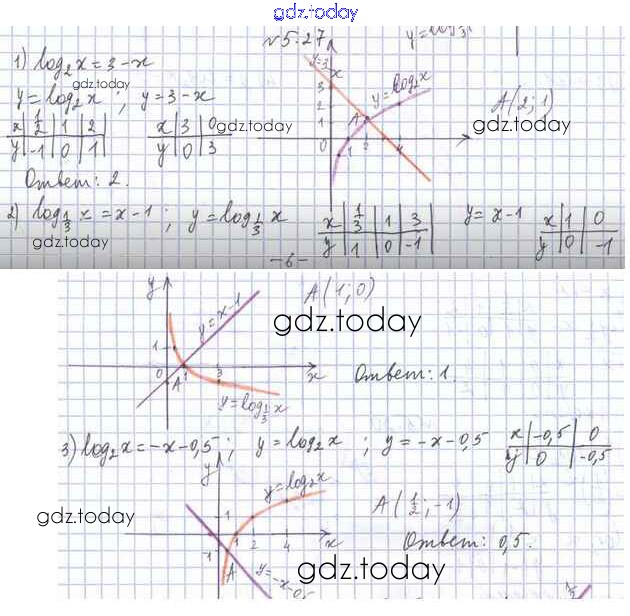 gdz.today
№5.27
1) log₂x = 3 - x
gdz.today
y = log₂x ; y = 3 - x
x | 1/2 | 1 | 2
y | -1 | 0 | 1
x | 3 | 0
y | 0 | 3
gdz.today
y = log₂x
A
3
2
1
0 1 2 4
x
A(2; 1)
gdz.today
Ответ: 2.
2) log_{1/3} x = x - 1 ; y = log_{1/3} x
x | 1/3 | 1 | 3
y | 1 | 0 | -1
y = x - 1
x | 1 | 0
y | 0 | -1
gdz.today
-6-
y
y = x - 1
A(1; 0)
gdz.today
1
0 A 1 3 x
y = log_{1/3} x
Ответ: 1.
3) log₂x = -x - 0,5 ; y = log₂x ; y = -x - 0,5
x | -0,5 | 0
y | 0 | -0,5
y
y = log₂x
1
1 2 4 x
-1
A
y = -x - 0,5
A(1/2; -1)
gdz.today
Ответ: 0,5.
gdz.today